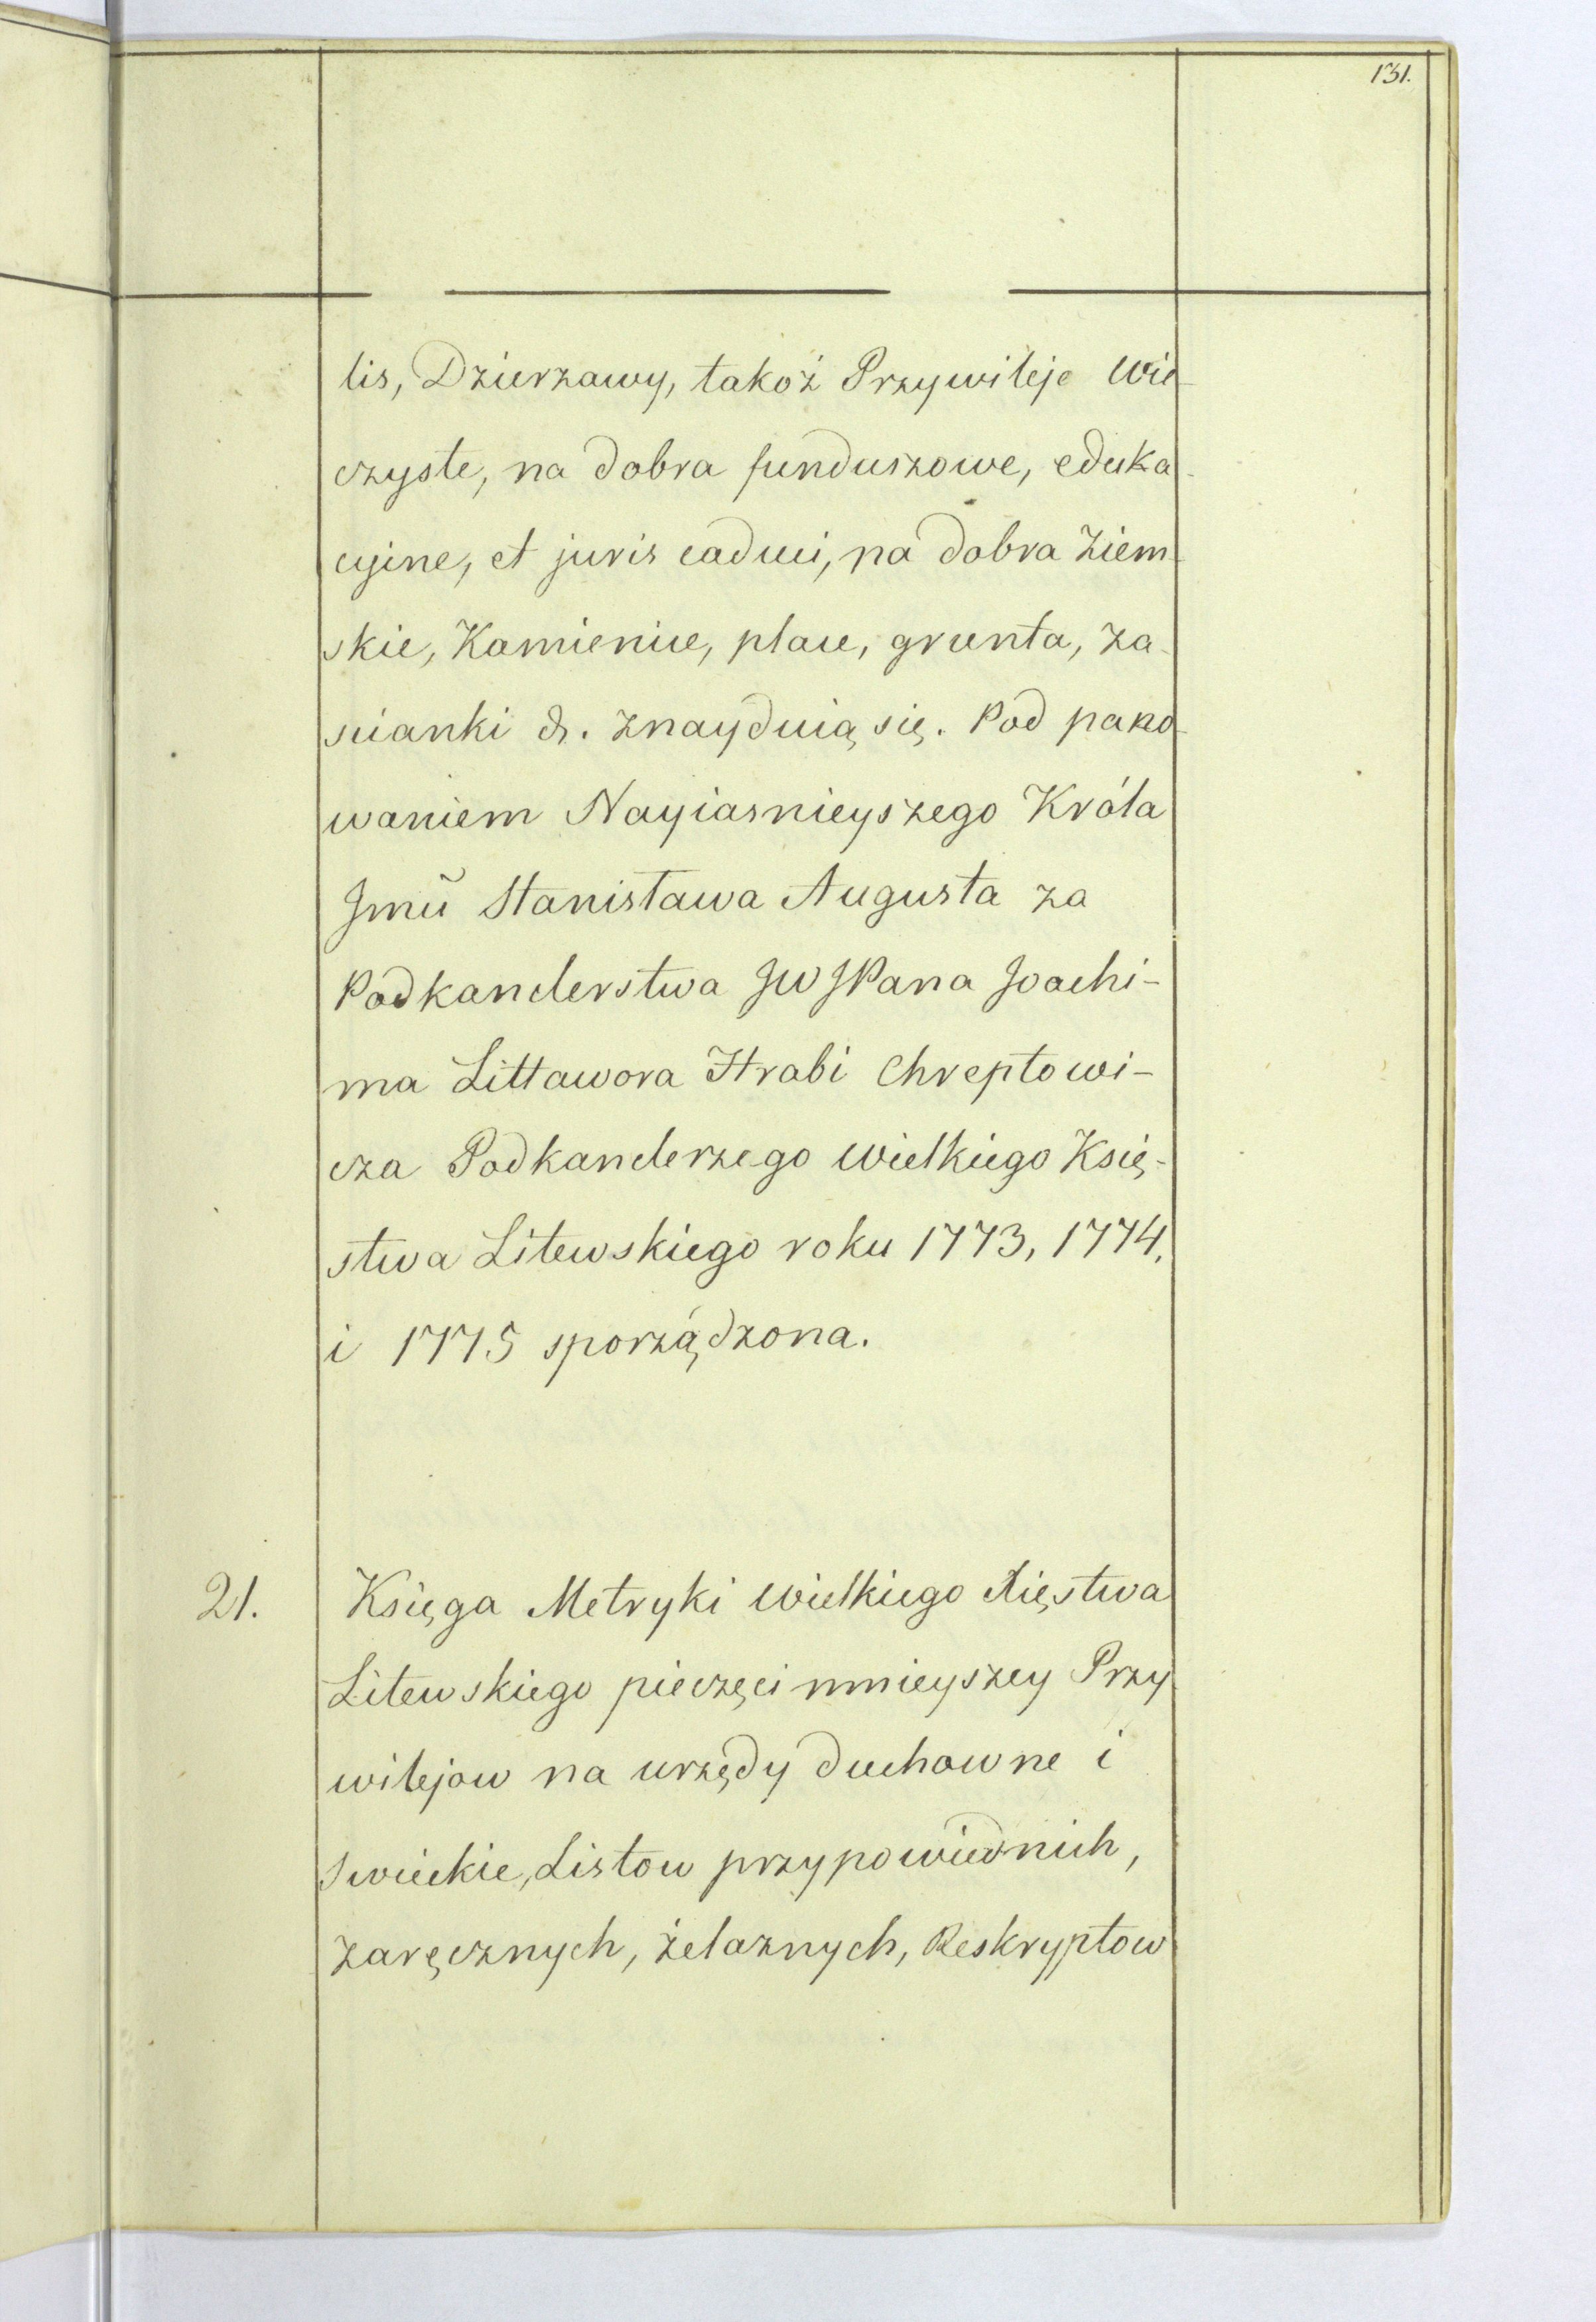 131.
lis, Dzierzawy, takoż Przywileje Wie-
czyste, na dobra funduszowe, eduka-
cyine, et juris caduci, na dobra Ziem-
skie, Kamienice, place, grunta, Za-
scianki &. Znayduią się. Pod pano-
waniem Nayiasnieyszego Króla
Jmci Stanisława Augusta za
Podkanclerstwa JW JPana Joachi-
ma Littawora Hrabi Chreptowi-
cza Podkanclerzego Wielkiego Księ-
stwa Litewskiego roku 1773, 1774,
i 1775 sporządzona.
21. Księga Metryki Wielkiego Xięstwa
Litewskiego pieczęci mnieyszey Przy
wilejow na urzędy duchowne i
Swieckie, Listow przypowiednich,
Zaręcznych, żelaznych, Reskryptow